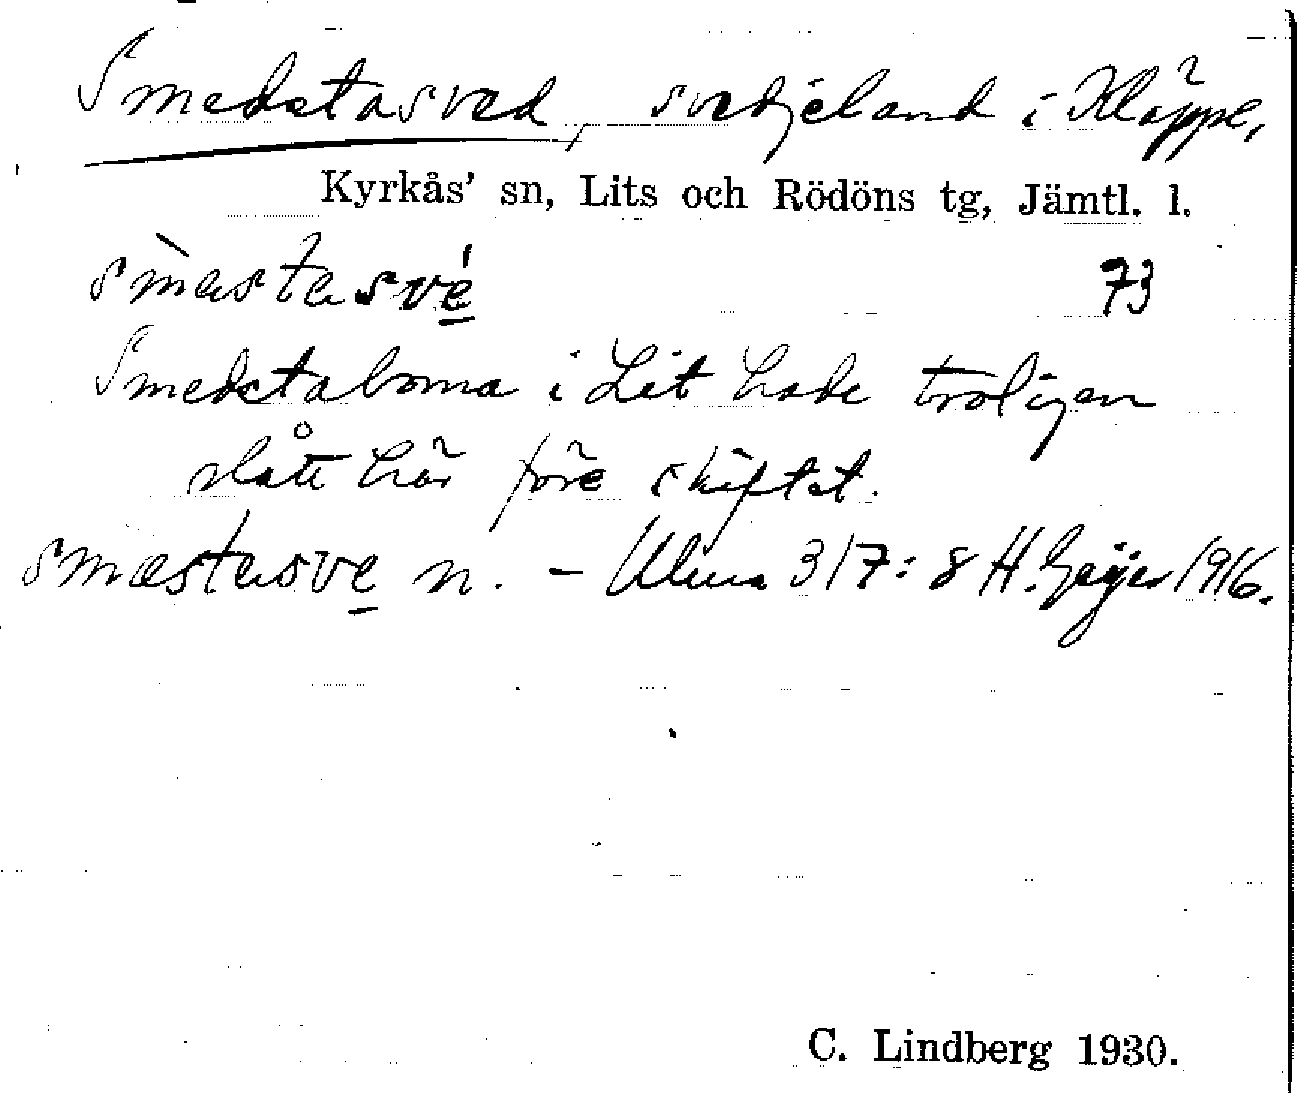 Smedstasved, svedjeland i Kläppe,
Kyrkås' sn, Lits och Rödöns tg, Jämtl. l.
smæstasve 73
Smedstaborna i Lit hade troligen
slått här före skiftet.
smæstasve n. – Ulma 317:8 H. Geijer 1916.
C. Lindberg 1930.